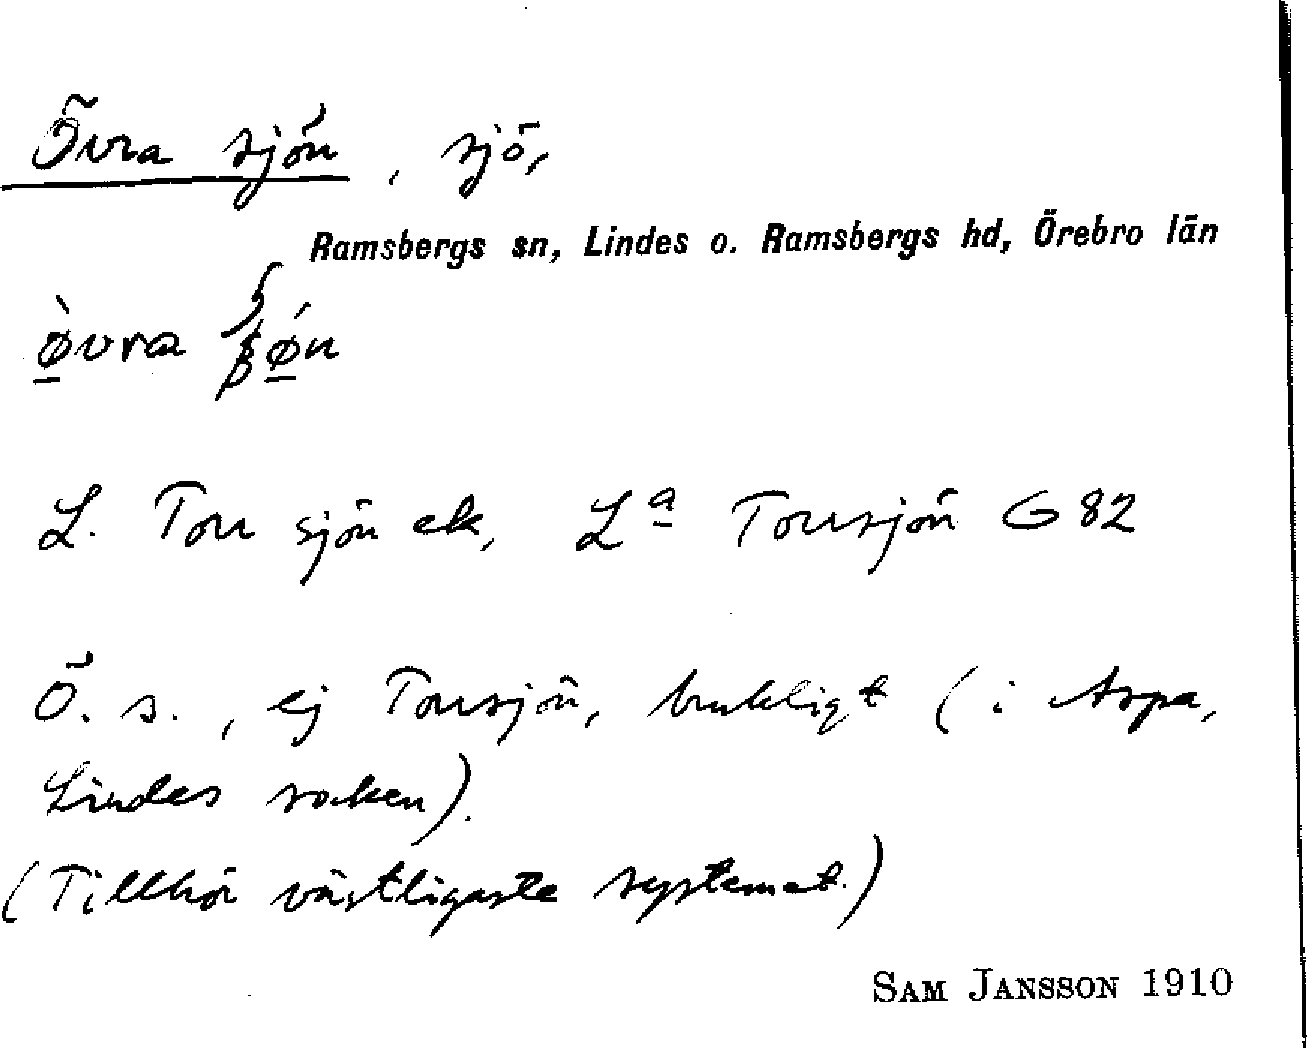 Övra sjön, sjö,
Ramsbergs sn, Lindes o. Ramsbergs hd, Örebro län
ø̀vra ʃǿn
L. Torr sjön ek, Lª Torrsjön G 82
Ö. s., ej Torrsjön, brukligt (i Aspa,
Lindes socken).
(Tillhör västligaste systemet.)
SAM JANSSON 1910